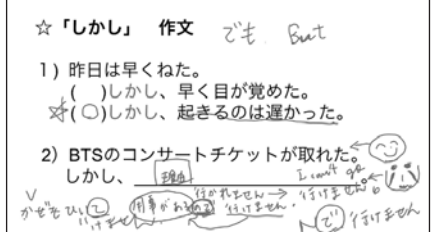 ☆「しかし」　作文　でも　But
1）昨日は早くねた。
（　）しかし、早く目が覚めた。
☆（○）しかし、起きるのは遅かった。
2）BTSのコンサートチケットが取れた。
しかし、理由　I can't go
行かれません→行けません。
かぜをひいて　用事があるので　行けません。
いけません　で　行けません